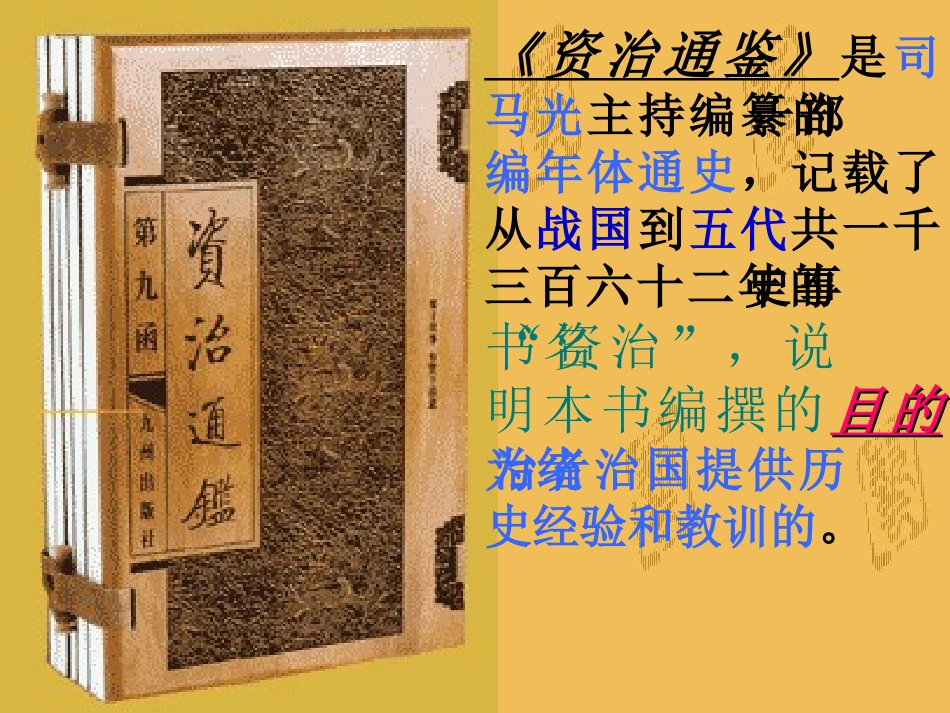 第九函
資治通鑑
九州出版社
《资治通鉴》是司
马光主持编纂的一部
编年体通史，记载了
从战国到五代共一千
三百六十二年的史事
书名“资治”，说
明本书编撰的目的
为统治者治国提供历
史经验和教训的。